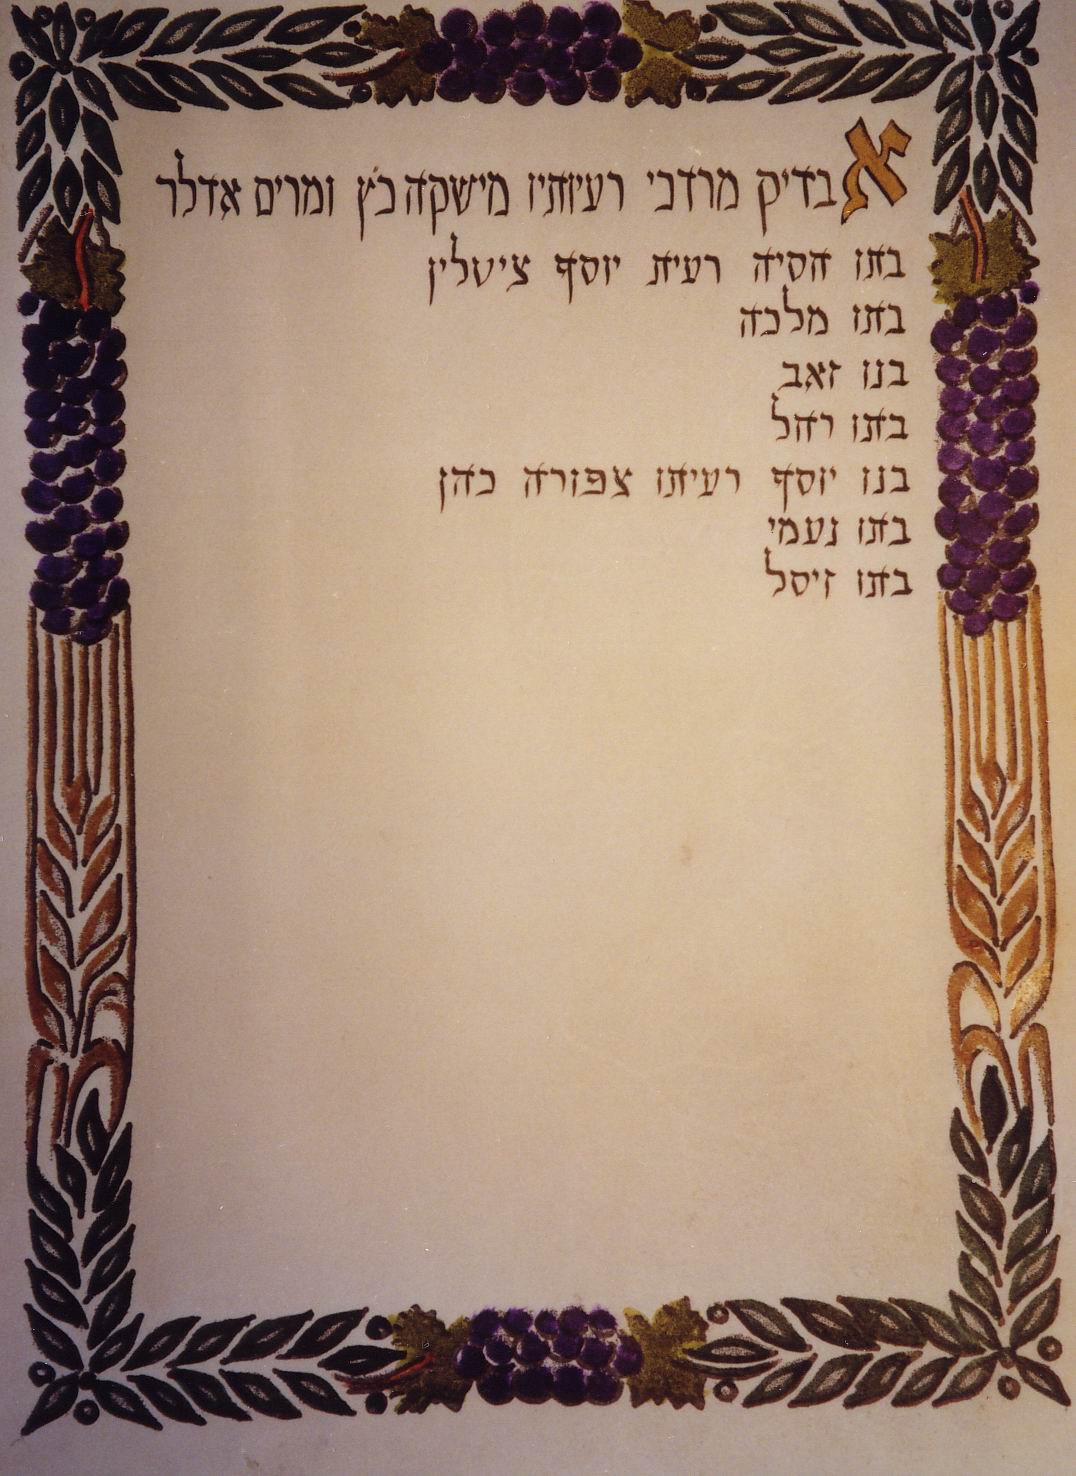 אבדיק מרדכי רעיותיו מישקה כץ ומרים אדלר
בתו הסיה רעית יוסף ציטלין
בתו מלכה
בנו זאב
בתו רחל
בנו יוסף רעיתו צפורה כהן
בתו נעמי
בתו זיסל